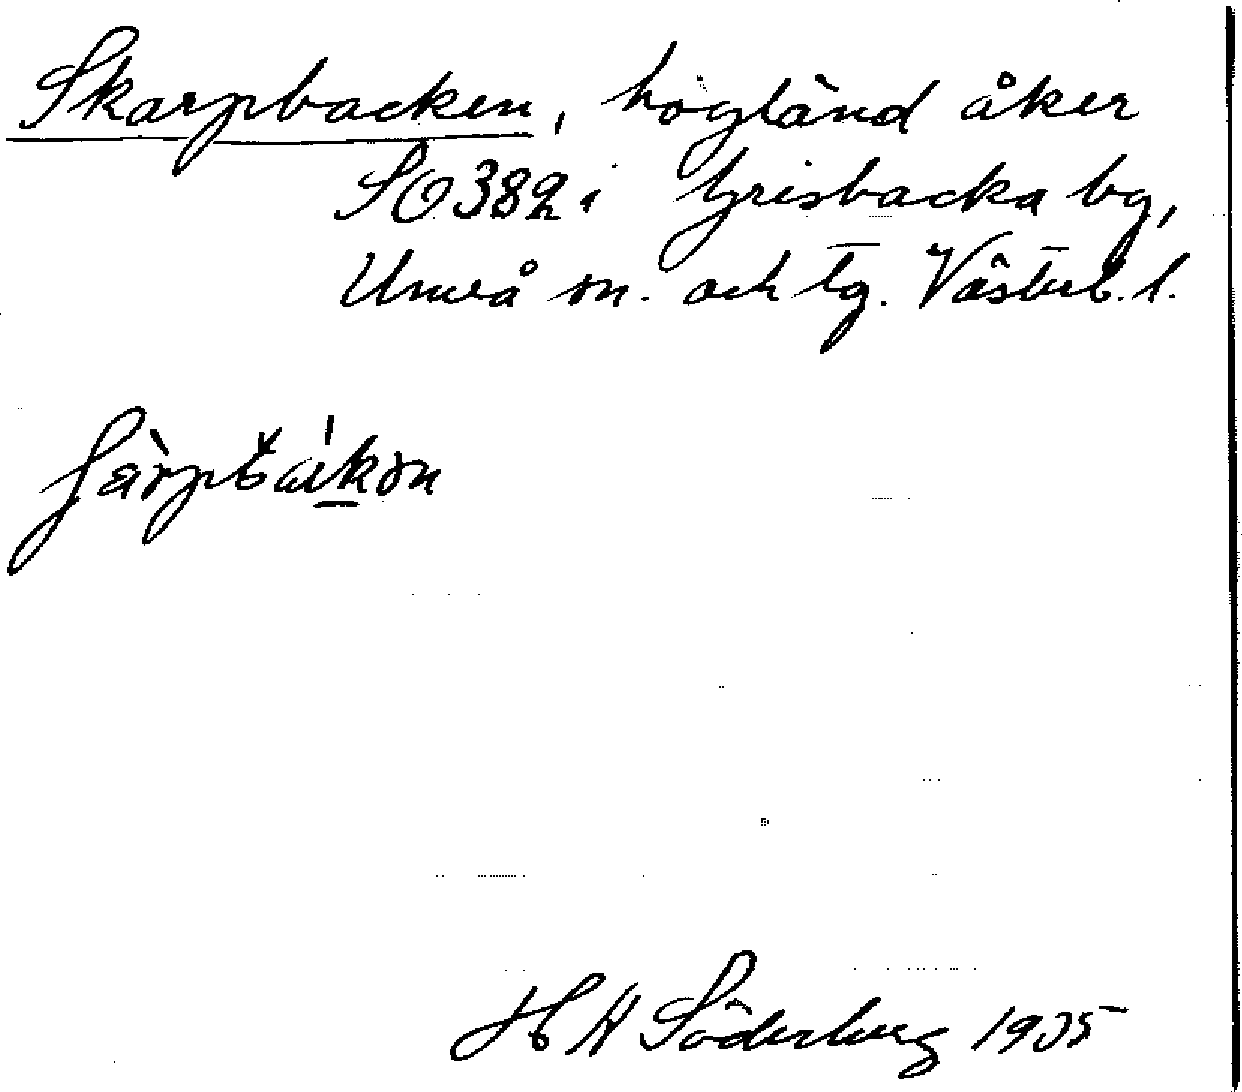 Skarpbacken, högländ åker
SO 382 i Grisbacka by,
Umeå sn. och tg. Västerb. l.
H Söderberg 1935